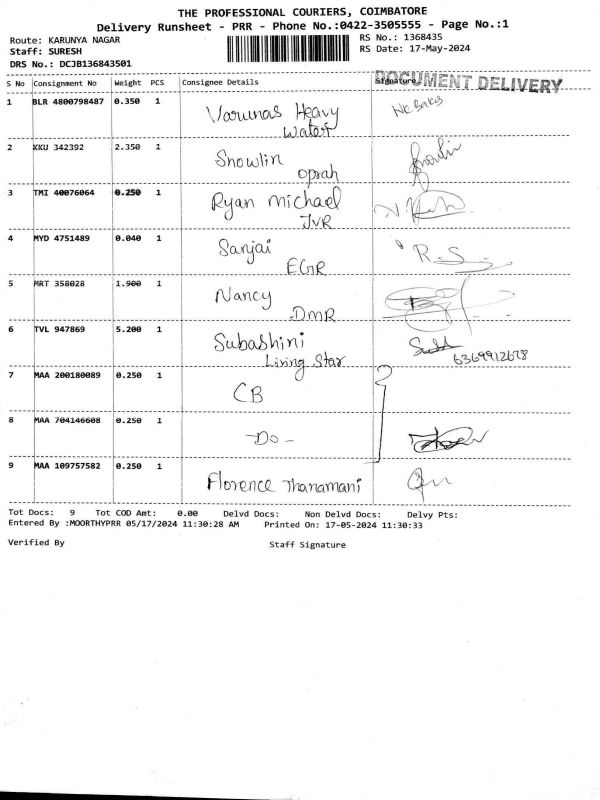 THE PROFESSIONAL COURIERS, COIMBATORE
Delivery Runsheet - PRR - Phone No.:0422-3505555 - Page No.:1
Route: KARUNYA NAGAR RS No.: 1368435
Staff: SURESH RS Date: 17-May-2024
DRS No.: DCJB136843501
DOCUMENT DELIVERY
S No Consignment No Weight PCS Consignee Details Signature
1 BLR 4800798487 0.350 1 Varunas Heavy
Water
2 KKU 342392 2.350 1 Snowlin
Oprah
3 TMI 40076064 0.250 1 Ryan Michael
JVR
4 MYD 4751489 0.040 1 Sanjai R.S
EGR
5 MRT 358028 1.900 1 Nancy
DMR
6 TVL 947869 5.200 1 Subashini
Living Star 6369912678
7 MAA 200180089 0.250 1 CB
8 MAA 704146608 0.250 1 -Do-
9 MAA 109757582 0.250 1 Florence Thanamani
Tot Docs: 9 Tot COD Amt: 0.00 Delvd Docs: Non Delvd Docs: Delvy Pts:
Entered By :MOORTHYPRR 05/17/2024 11:30:28 AM Printed On: 17-05-2024 11:30:33
Verified By Staff Signature